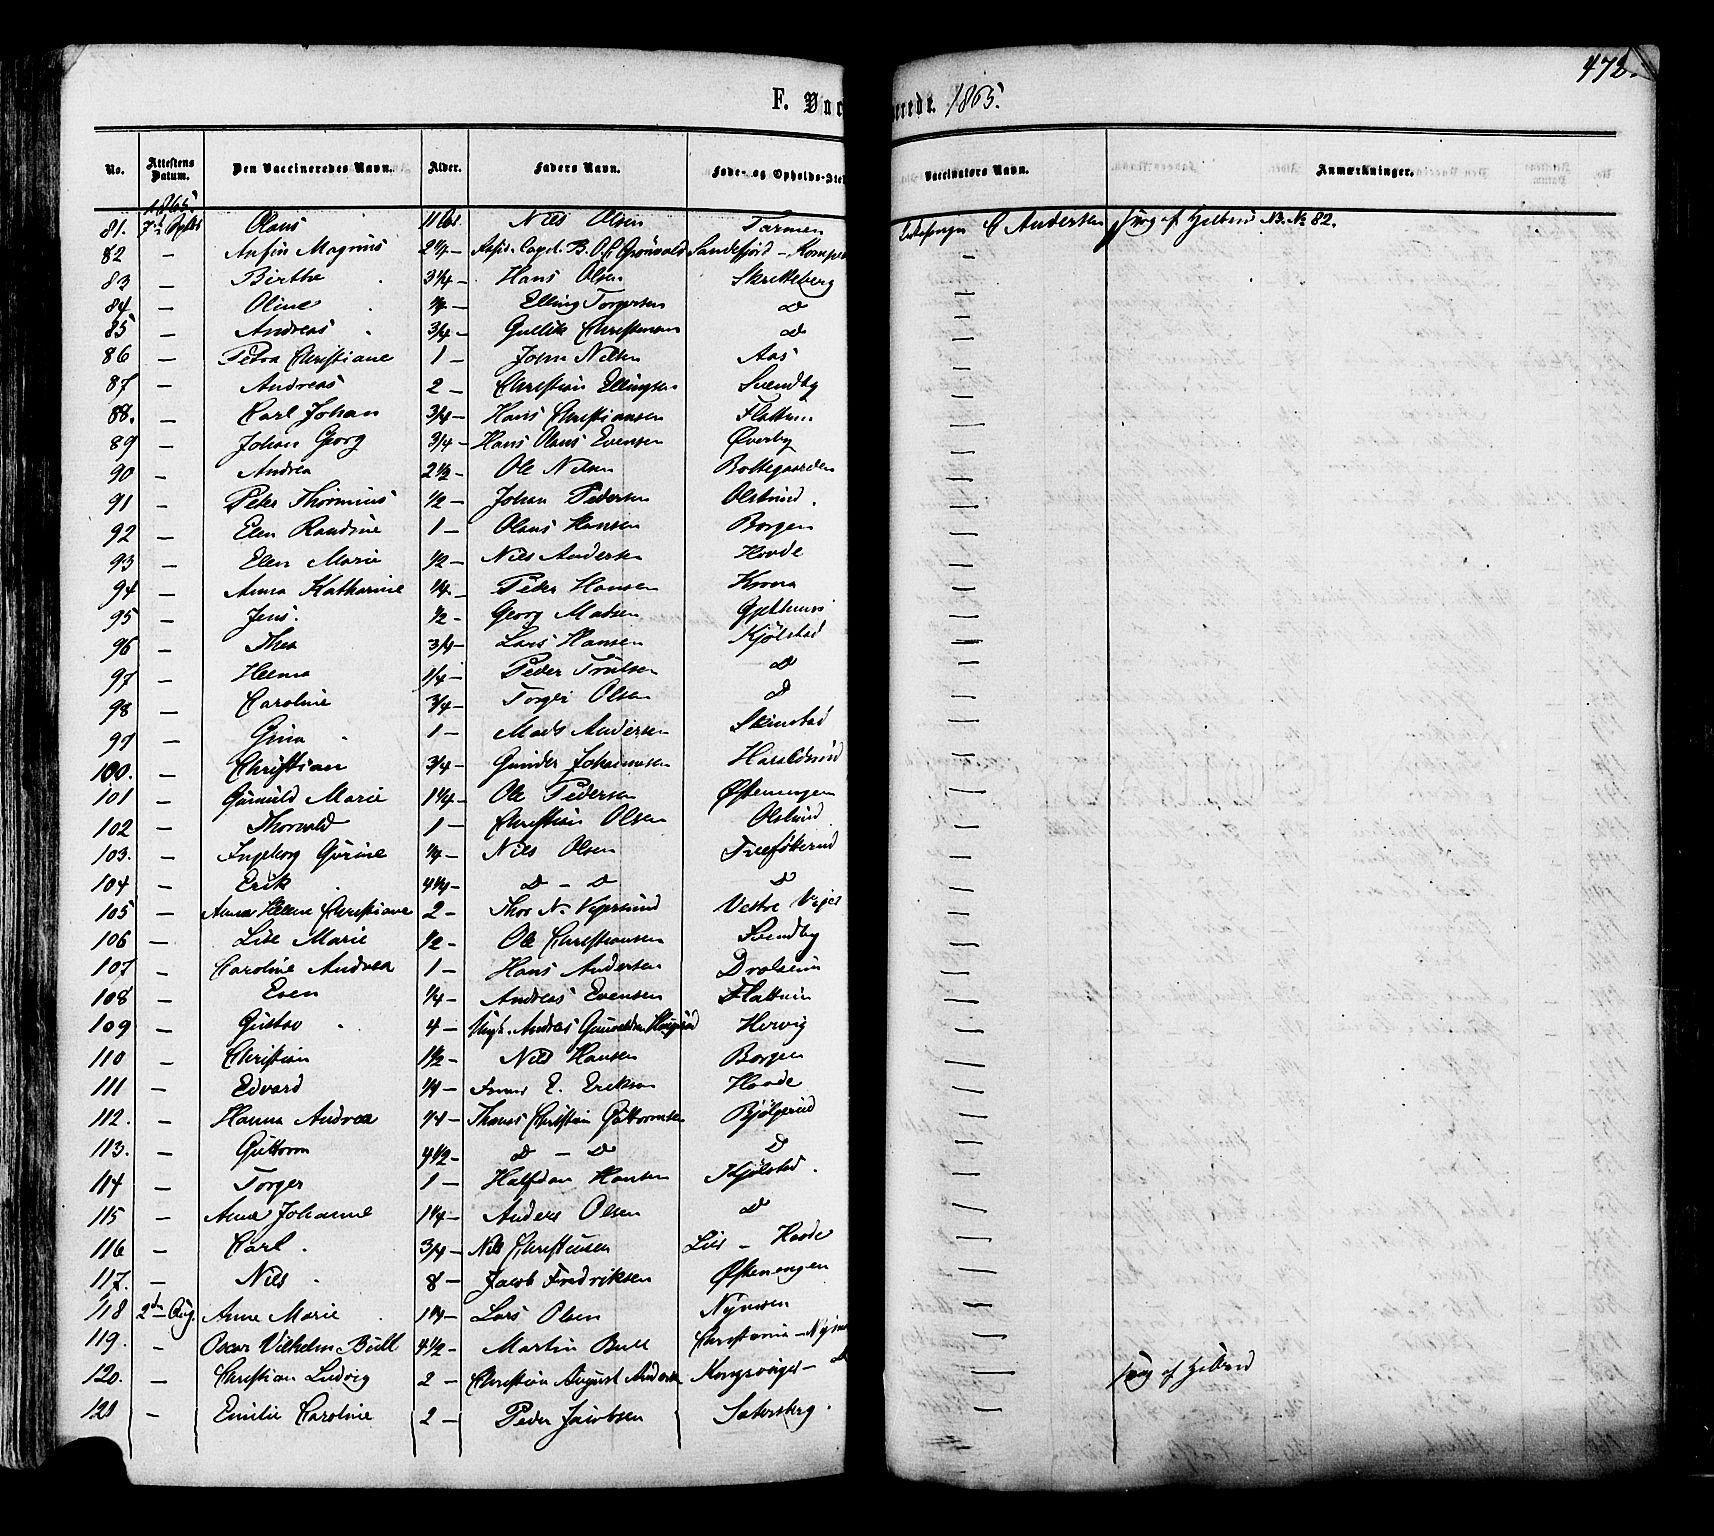 472.
F. Vac
erede. 1865.
No. Attestens Datum. Den Vaccineredes Navn. Alder. Faders Navn. Føde- og Opholds-Sted Vaccinators Navn. Anmærkninger.
1865
81. Olaus Nils Olsen Farmen C Andersen af Helbred N.B. No 82.
82 — Magnus B. Sandefjord —
83 — Birthe 3¼ — Hans Olsen Skretteberg —
84 — Oline Elling Torgersen D —
85 — Andreas 3/4 — Gullik Christensen D —
86 — Petra Christiane 1 — John Nilsen Aas —
87 — Andreas 2 — Christian Ellingsen Svendby —
88. — Carl Johan 3/4 — Hans Christiansen Flattum —
89 — Johan Georg 3/4 — Hans Olaus Evensen Øverby —
90 — Andrea 2⅓ — Ole Nilsen Bottegaarden —
91 — Peter 1/2 — Johan Pedersen Olstrud. —
92 — Elen Randine 1 — Olaus Hansen Borgen —
93 — Elen Marie 1/2 — Nils Andersen Hovde —
94 — Anna Katharine 1/4 — Peder Hansen Krona —
95 — Jens. 1/2 — Georg Madsen Gjethuus —
96 — Thea 3/4 — Lars Hansen Kjølstad —
97 — Helma 1/4 — Peder Trulsen D —
98 — Caroline 3/4 — Torger Olsen D —
99 — Gina 1 — Mads Andersen —
100. — Christian 3/4 — Gunder Johannesen Haraldsrud —
101 — Gunnild Marie 1¼ — Ole Pedersen Østenengen —
102 — Thorvald 1 — Christian Olsen Olstrud. —
103. — Ingeborg Gurine 1/4 — Nils Olsen —
104 — Erik 4¼ — D — D D —
105 — Anna Helene Christiane 2 — Thos N. Vigersund Vestre —
106 — Lise Marie 1/2 — Ole Christiansen Svendby —
107 — Caroline Andrea 1 — Hans Andersen Drolsum —
108 — Even 1/4 — Andreas Evensen Flattum —
109 — Gustav 4 — Andreas Hervig —
110 — Christian 1½ — Nils Hansen Borgen —
111 — Edvard 1/4 — E. Eriksen Hovde —
112. — Hanna Andrea 1/4 — Christian Guttormsen Bjølgerud —
113. — Guttorm 4½ — D — D D —
114 — Torger 1 — Halfdan Hansen Kjølstad. —
115 — Anne Johanne 1¼ — Anders Olsen D —
116 — Carl. 3/4 — Nils Christensen — Hovde —
117. — Nils. 8 — Jacob Fredriksen Østenengen —
118 2den Aug. Anne Marie Lars Olsen Nymoen —
119. — Oscar Vilhelm Bull 4½ — Martin Bull Christiania — —
120. — Christian Ludvig 2 — Christian August Kongsvinger — D — af Helbred
121 — Emilie Caroline 2 — Peder Jacobsen Sætersberg. —